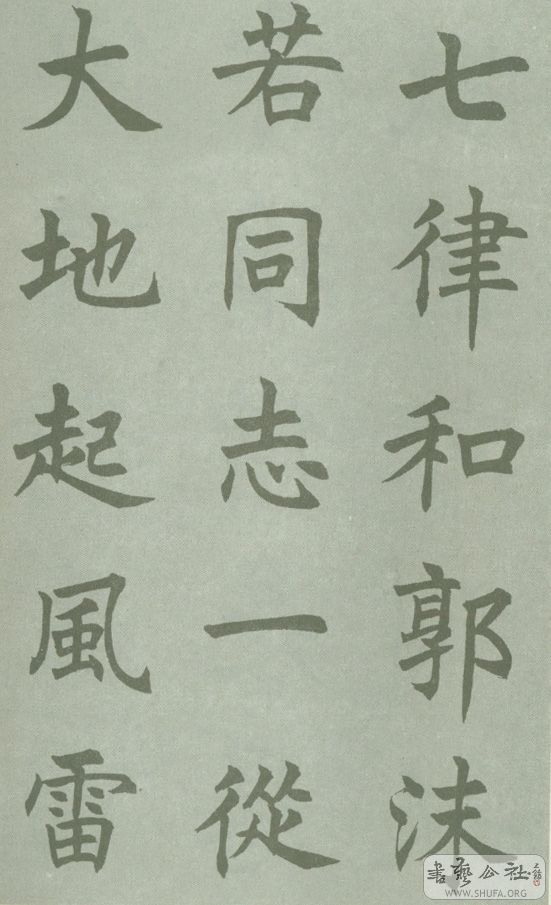 七律和郭沫
若同志一從
大地起風雷
書藝公社
WWW.SHUFA.ORG